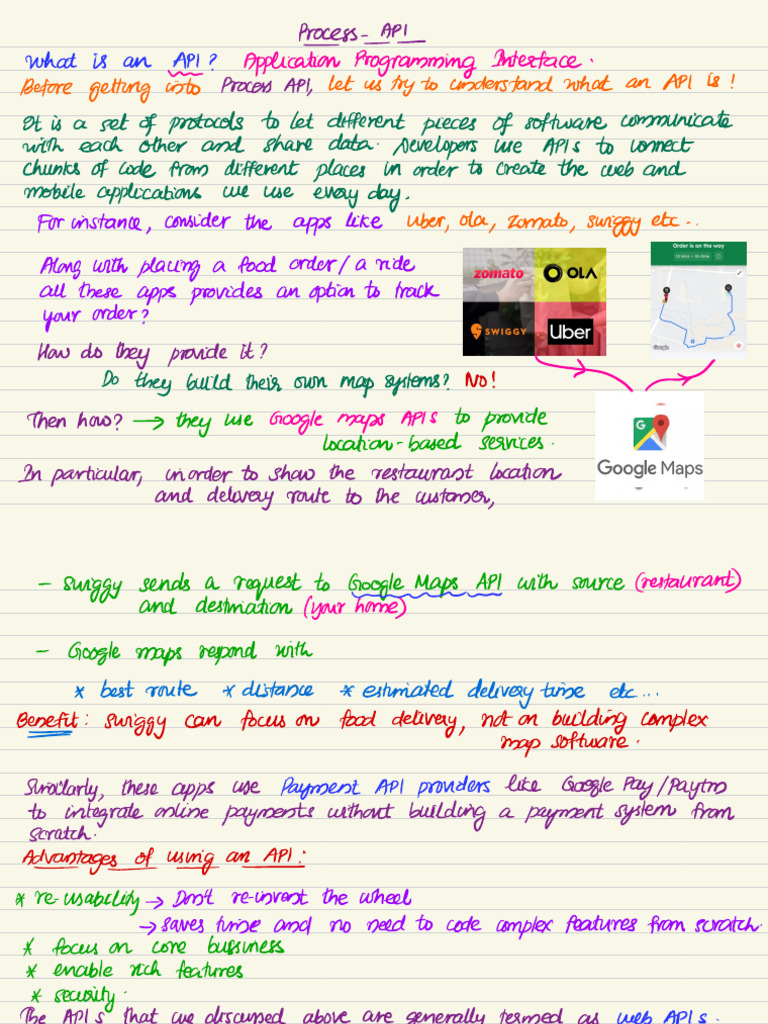 Process - API
What is an API? Application Programming Interface.
Before getting into Process API, let us try to understand what an API is!
It is a set of protocols to let different pieces of software communicate
with each other and share data. Developers use APIs to connect
chunks of code from different places in order to create the web and
mobile applications we use every day.
For instance, consider the apps like Uber, ola, Zomato, swiggy etc...
Along with placing a food order/a ride
all these apps provides an option to track
your order?
zomato
OLA
SWIGGY
Uber
Order is on the way
Google
How do they provide it?
Do they build their own map systems? No!
Then how? → they use Google maps APIs to provide
location-based services.
Google Maps
In particular, inorder to show the restaurant location
and delivery route to the customer,
- Swiggy sends a request to Google Maps API with source (restaurant)
and destination (your home)
- Google maps respond with
* best route * distance * estimated delivery time etc...
Benefit: swiggy can focus on food delivery, not on building complex
map software.
Similarly, these apps use Payment API providers like Google Pay/Paytm
to integrate online payments without building a payment system from
scratch.
Advantages of using an API:
* re-usability → Don't re-invent the wheel
→ saves time and no need to code complex features from scratch.
* focus on core bussiness
* enable rich features
* security.
The APIs that we discussed above are generally termed as web APIs.